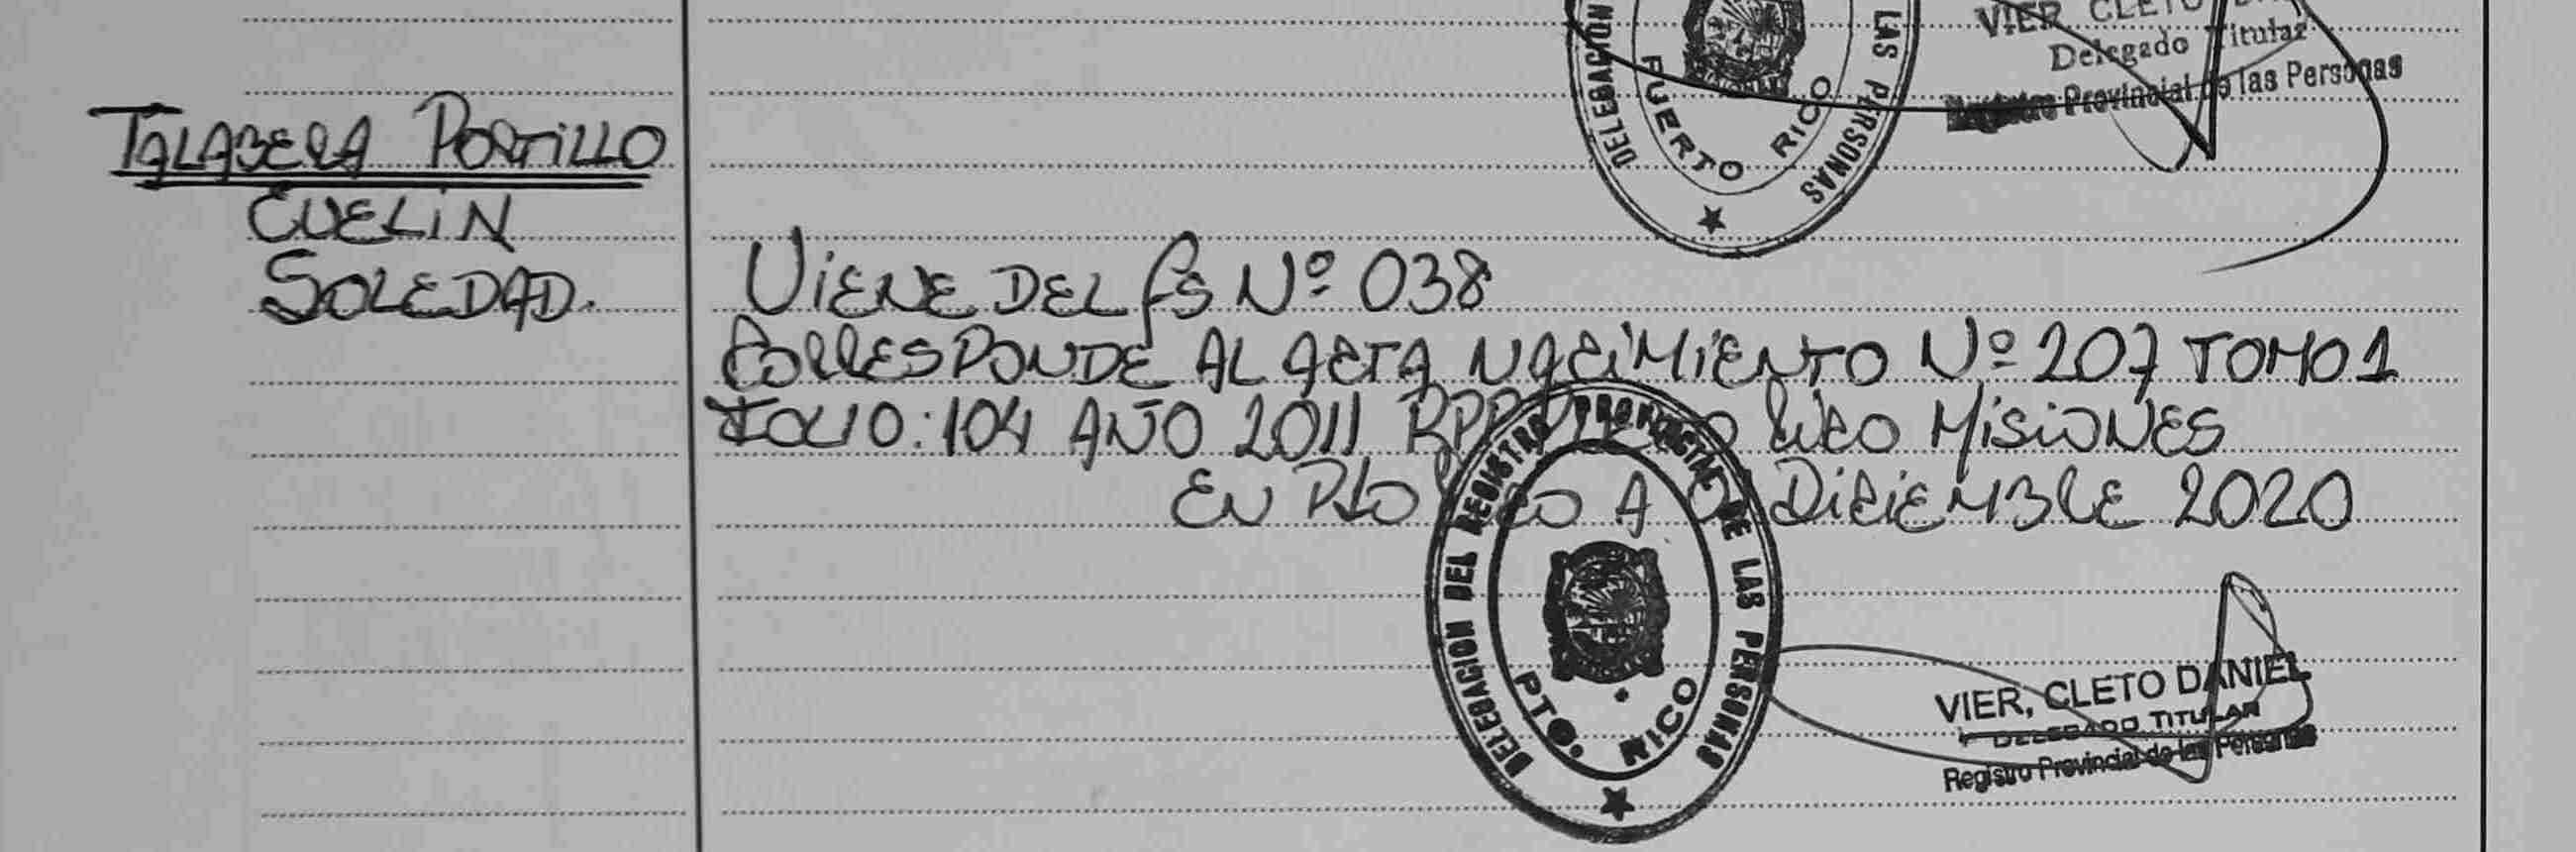 VIER CLETO
Delegado Titular
Provincial de las Personas
DELEGACION LAS PERSONAS
PUERTO RICO
TALABERA PORTILLO
EVELIN
SOLEDAD.
VIENE DEL fs Nº 038
CORRESPONDE AL ACTA NACIMIENTO Nº 207 TOMO 1
FOLIO: 104 AÑO 2011 RPP Rico MISIONES
EN Pto Rico A DICIEMBRE 2020
DELEGACION DEL REGISTRO PROVINCIAL DE LAS PERSONAS
PTO. RICO
VIER, CLETO DANIEL
DELEGADO TITULAR
Registro Provincial de las Personas